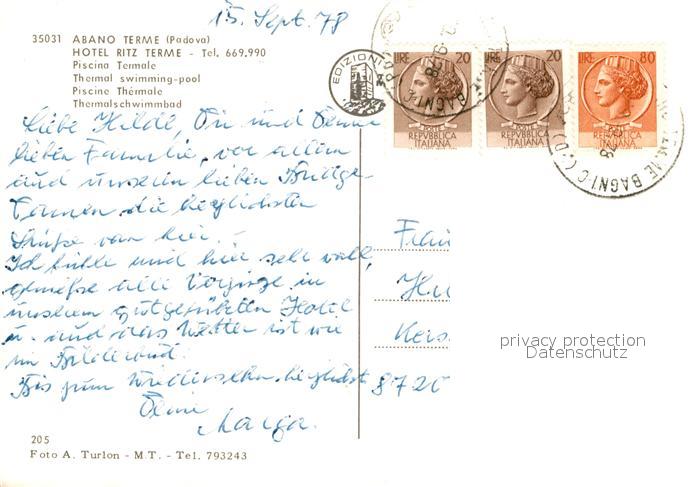 15. Sept. 78
35031 ABANO TERME (Padova)
HOTEL RITZ TERME - Tel. 669.990
Piscina Termale
Thermal swimming-pool
Piscine Thérmale
Thermalschwimmbad
EDIZIONI
LIRE 20
LIRE 20
LIRE 80
POSTE REPVBBLICA ITALIANA
POSTE REPVBBLICA ITALIANA
POSTE REPVBBLICA ITALIANA
Liebe Hilde, Dir und Deiner
lieben Familie, vor allem
und unserem lieben
die herzlichsten
Grüße von hier. –
Ich fühle mich hier sehr wohl,
genieße alle Vorzüge in
unserem gutgeführten Hotel
u. das Wetter ist wie
im Bilderbuch.
Bis zum Wiedersehn, herzlichst
Deine
Marga.
Frau
8720
privacy protection
Datenschutz
205
Foto A. Turlon - M.T. - Tel. 793243